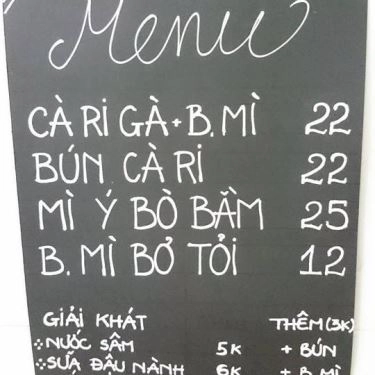 Menu
CÀ RI GÀ + B.MÌ 22
BÚN CÀ RI 22
MÌ Ý BÒ BẰM 25
B.MÌ BƠ TỎI 12
GIẢI KHÁT THÊM (3K)
NƯỚC SÂM 5K + BÚN
SỮA ĐẬU NÀNH 6K + B.MÌ